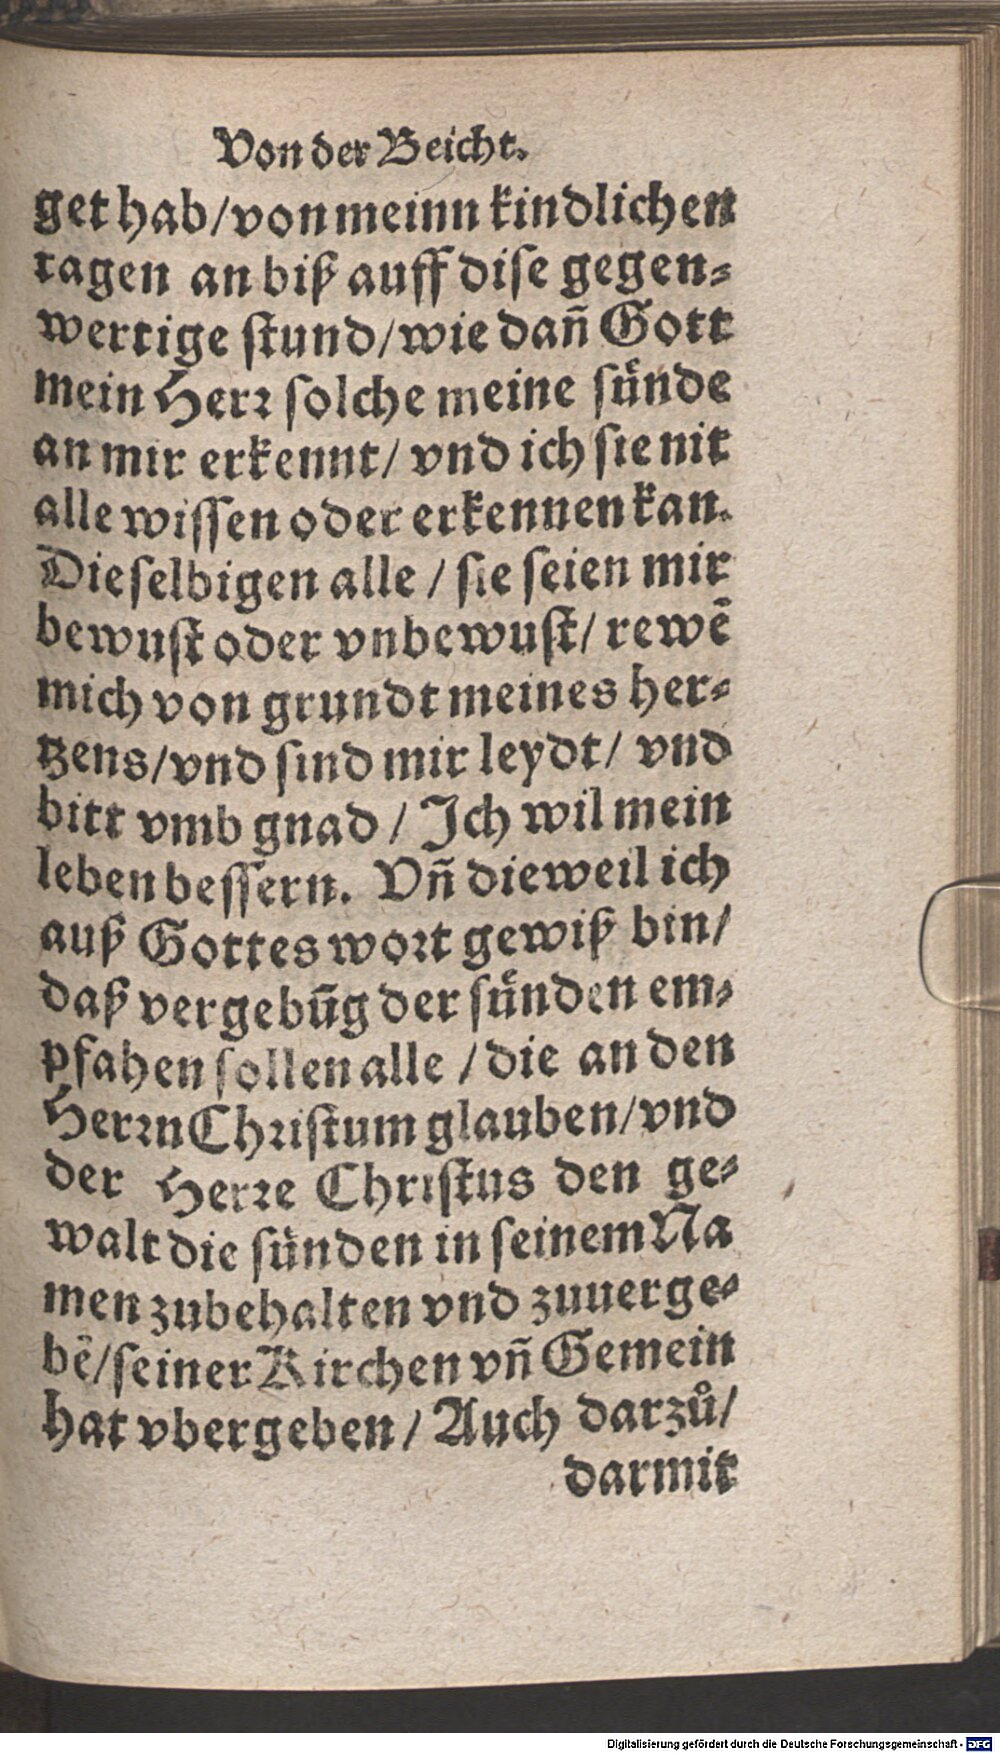 Von der Beicht.
get hab/von meinn kindlichen
tagen an biß auff dise gegen-
wertige stund/wie dañ Gott
mein Herr solche meine sünde
an mir erkennt/ vnd ich sie nit
alle wissen oder erkennen kan.
Dieselbigen alle / sie seien mir
bewust oder vnbewust/ rewē
mich von grundt meines her-
tzens/vnd sind mir leydt/ vnd
bitt vmb gnad / Ich wil mein
leben bessern. Vñ dieweil ich
auß Gottes wort gewiß bin/
daß vergebūg der sünden em-
pfahen sollen alle / die an den
Herrn Christum glauben/vnd
der Herre Christus den ge-
walt die sünden in seinem Na
men zubehalten vnd zuuerge-
bē/seiner Kirchen vñ Gemein
hat vbergeben/ Auch darzů/
darmit
Digitalisierung gefördert durch die Deutsche Forschungsgemeinschaft - DFG